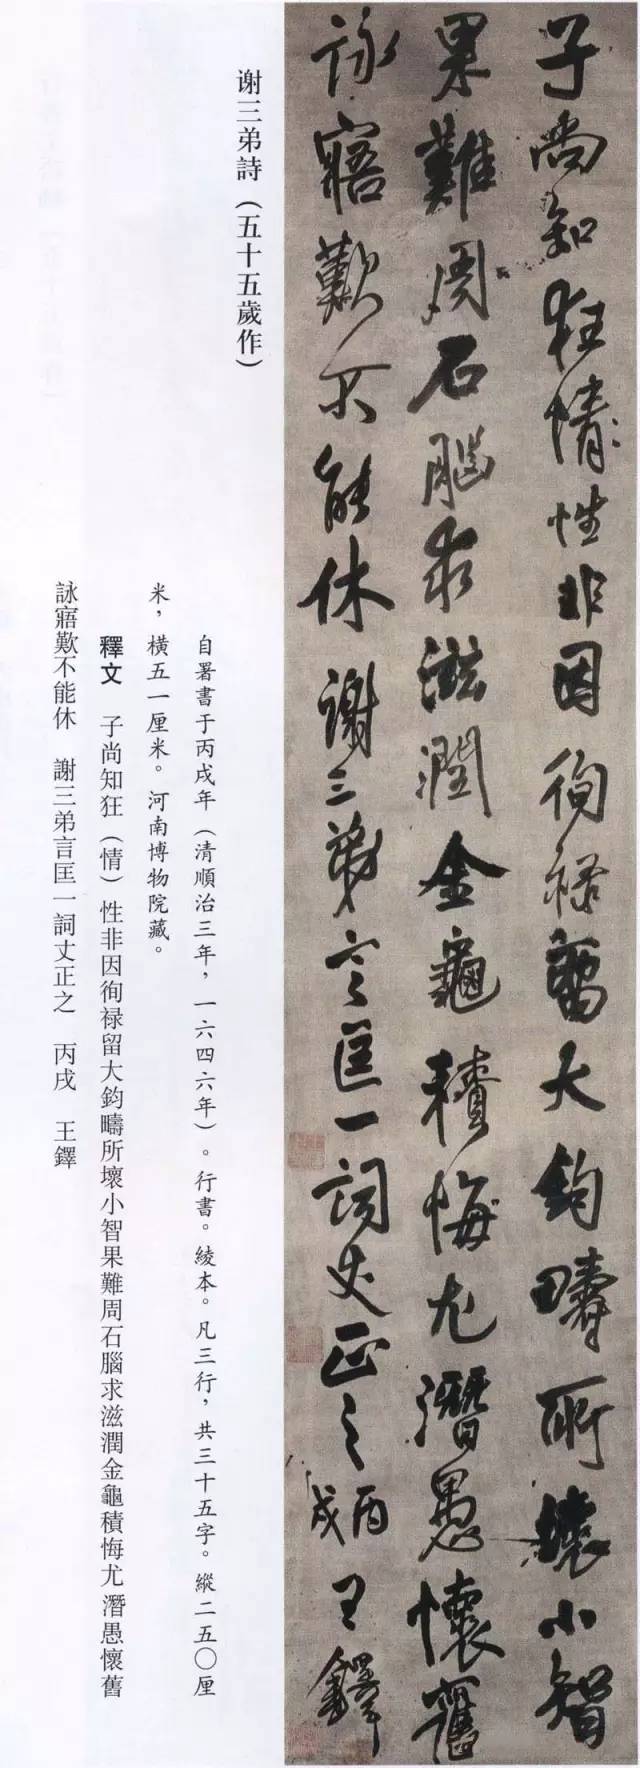 子尚知狂情性非因徇祿留大鈞疇所壞小智
果難周石腦求滋潤金龜積悔尤潛愚懷舊
詠寤歎不能休謝三弟言匡一詞丈正之丙戌王鐸
谢三弟詩（五十五歲作）
自署書于丙戌年（清順治三年，一六四六年）。行書。綾本。凡三行，共三十五字。縱二五〇厘
米，橫五一厘米。河南博物院藏。
釋文　子尚知狂（情）性非因徇禄留大鈞疇所壞小智果難周石腦求滋潤金龜積悔尤潛愚懷舊
詠寤歎不能休　謝三弟言匡一詞丈正之　丙戌　王鐸